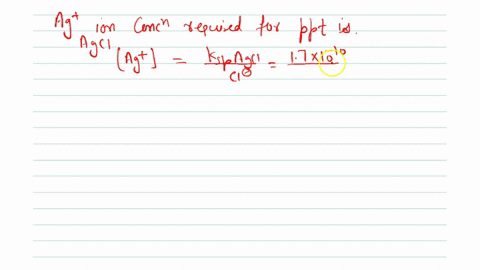 Ag⁺ ion concⁿ required for ppt is.
AgCl
[Ag⁺] = Ksp AgCl / Cl⊖ = 1.7 × 10¹⁰